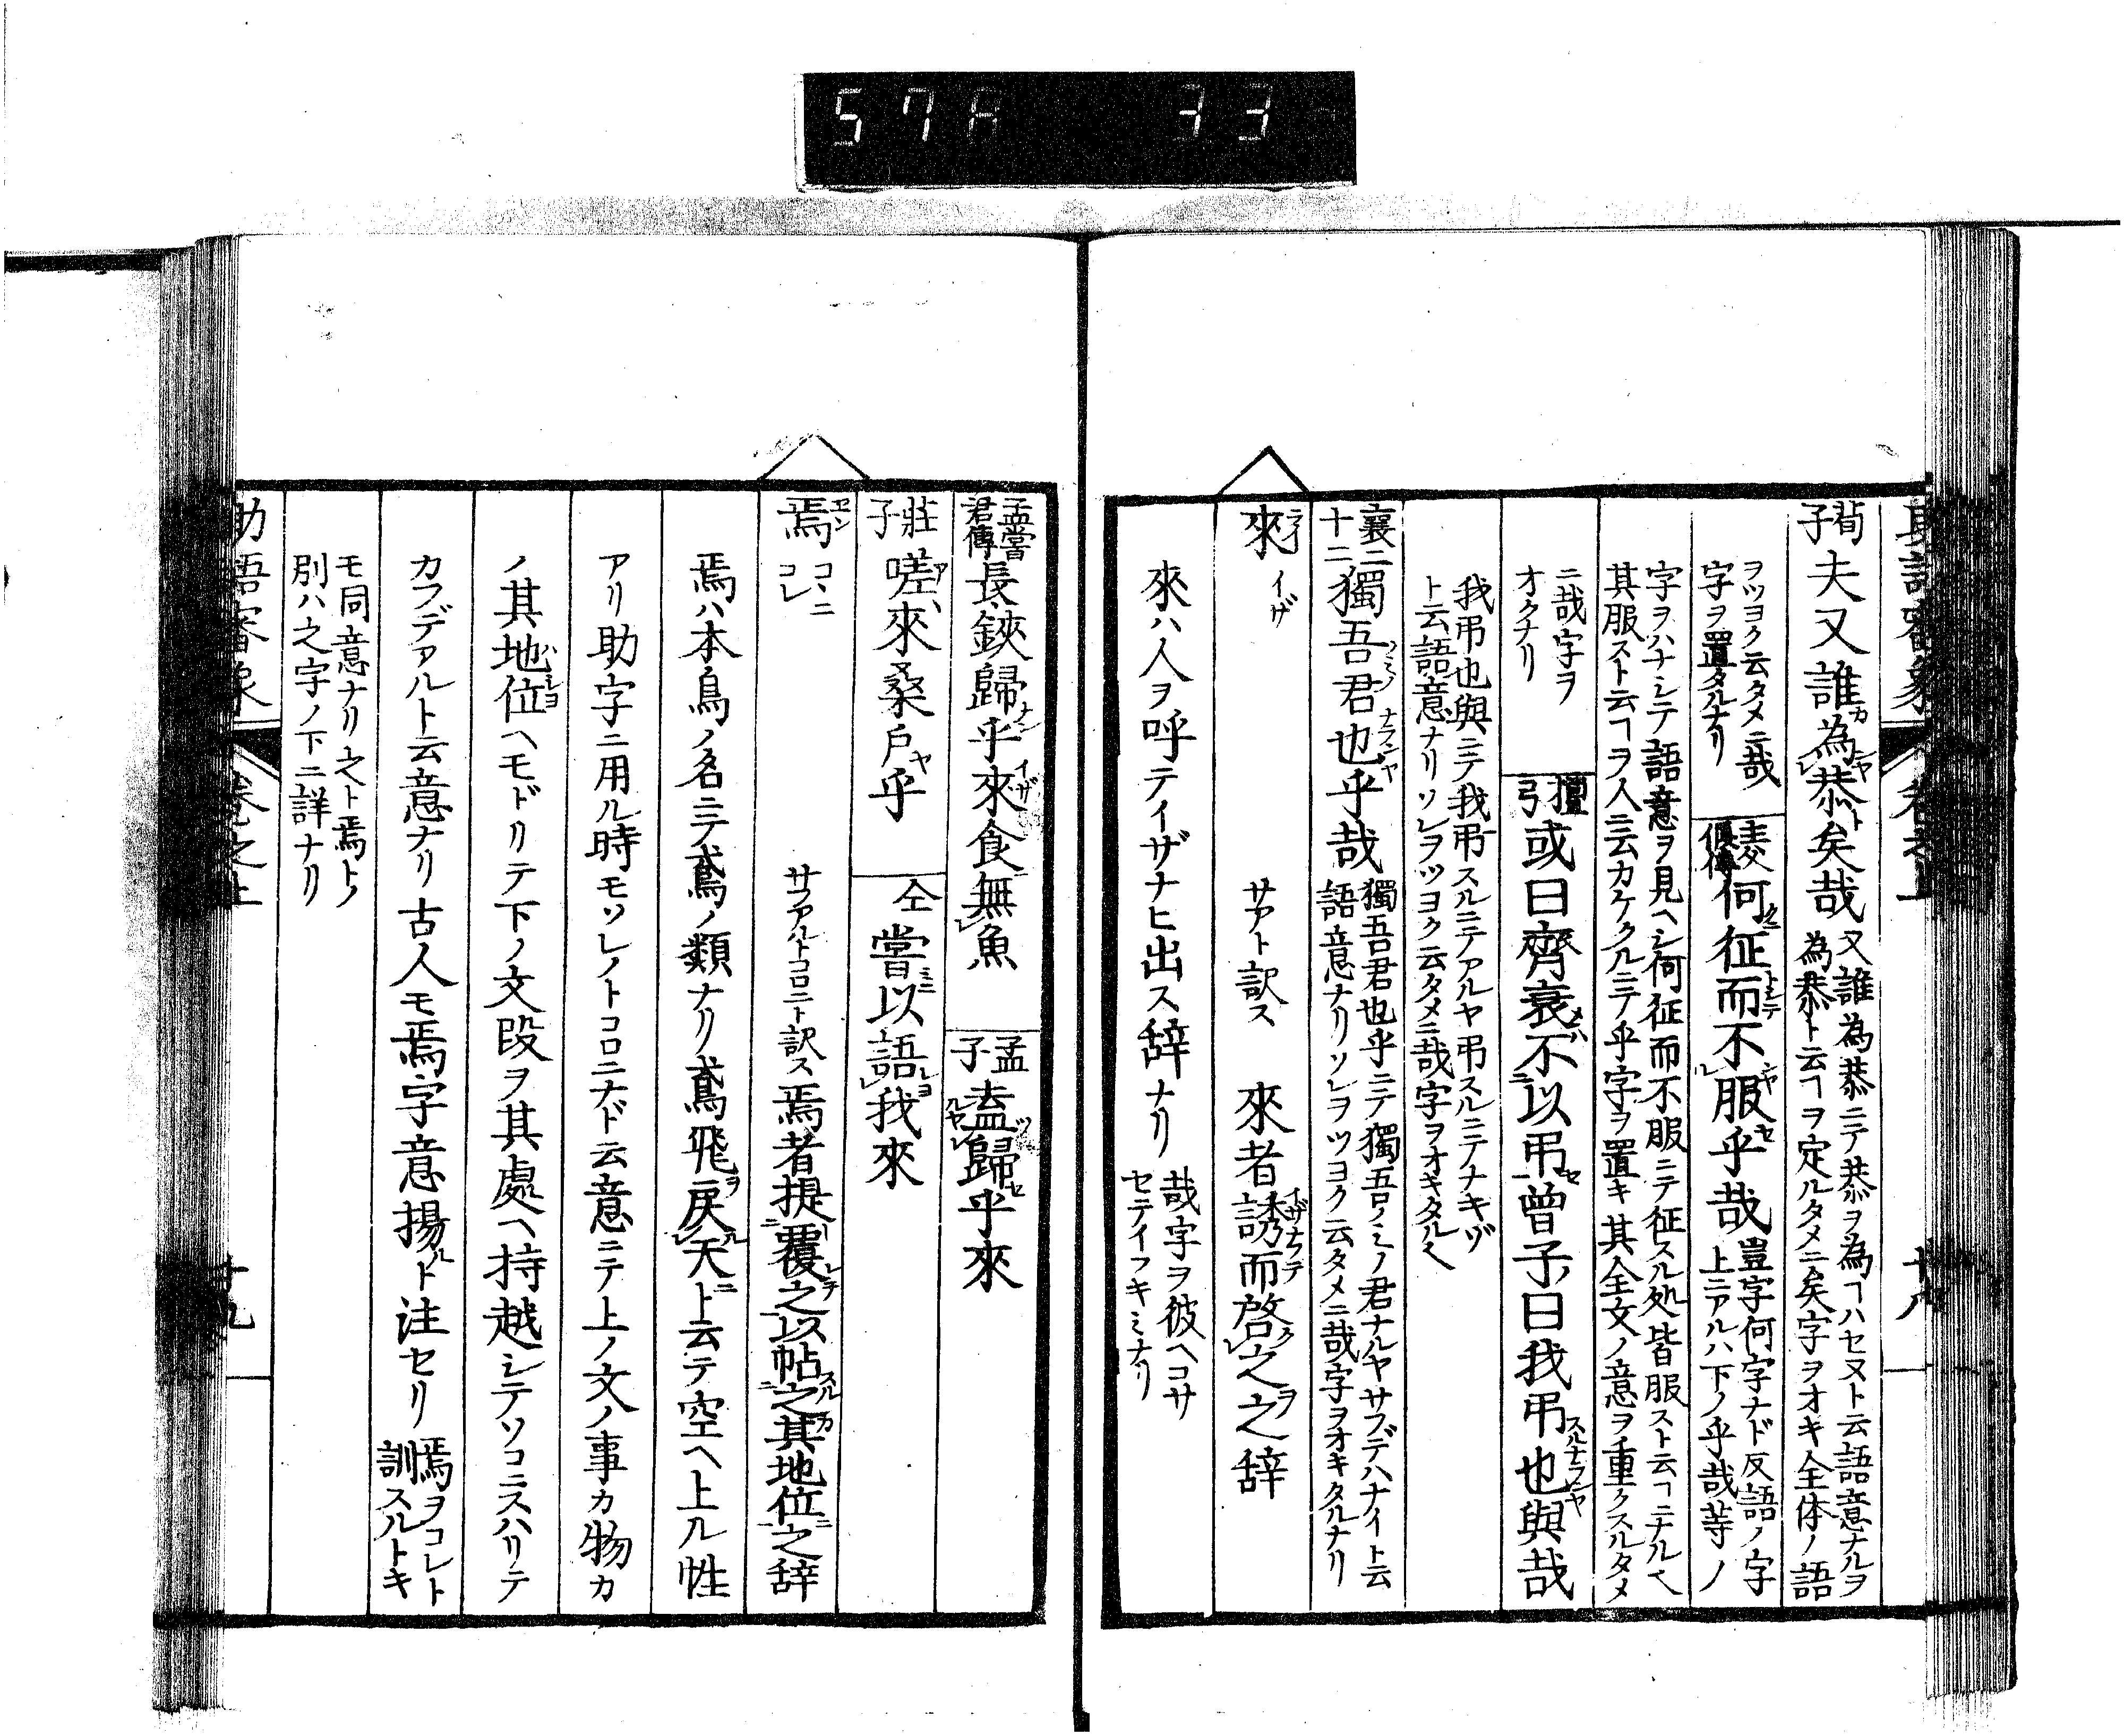 57A 33
荀子 夫又誰為恭矣哉 又誰為恭ニテ恭ヲ為ヿハセヌト云語意ナルヲ
為恭ト云ヿヲ定ルタメニ矣字ヲオキ全体ノ語
ヲツヨク云タメニ哉
字ヲ置タルナリ
何征而不服乎哉 豈字何字ナド反語ノ字
上ニアルハ下ノ乎哉等ノ
字ヲハナシテ語意ヲ見ヘシ何征而不服ニテ征スル処皆服スト云ヿニナルヘ
其服スト云ヿヲ人ニ云カケクルニテ乎字ヲ置キ其全文ノ意ヲ重クスルタメ
ニ哉字ヲ
オクナリ
檀弓 或曰齊衰不以弔曾子曰我弔也與哉
我弔也與ニテ我弔スルニテアルヤ弔スルニテナキヅ
ト云語意ナリソレヲツヨク云タメニ哉字ヲオキタルヘ
襄二十二 獨吾君也乎哉 獨吾君也乎ニテ獨吾ノミノ君ナルヤサフデハナイト云
語意ナリソレヲツヨク云タメニ哉字ヲオキタルナリ
來 ライ イザ サアト訳ス 來者誘而啓之之辞
來ハ人ヲ呼テイザナヒ出ス辞ナリ 哉字ヲ彼ヘコサ
セテイフキミナリ
孟嘗君傳 長鋏歸乎來食無魚
孟子 盍歸乎來
莊子 嗟來桑戶乎
仝 嘗以語我來
焉 エン コヽニ コレ サフアルトコロニト訳ス 焉者提覆之以帖之其地位之辞
焉ハ本鳥ノ名ニテ鳶ノ類ナリ鳶飛戾天上云テ空ヘ上ル性
アリ助字ニ用ル時モソレノトコロニナド云意ニテ上ノ文ノ事カ物カ
ノ其地位ヘモドリテ下ノ文段ヲ其處ヘ持越シテソコニスハリテ
カフデアルト云意ナリ古人モ焉字意揚ルト注セリ 焉ヲコレト
訓スルトキ
モ同意ナリ之ト焉トノ
別ハ之字ノ下ニ詳ナリ
助語審象 卷之上 十九